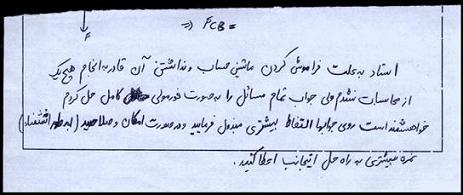 F
⇒ FCB =
استاد به علت فراموش کردن ماشین حساب و نداشتن آن قادر به انجام هیچ یک
از محاسبات نشدم ولی جواب تمام مسائل را به صورت فرمولی کامل حل کردم
خواهشمند است روی جوابها التفاط بیشتری مبذول فرمایید و در صورت امکان و صلاحدید (به طور استثناء)
نمره بیشتری به راه حل اینجانب اعطا کنید.